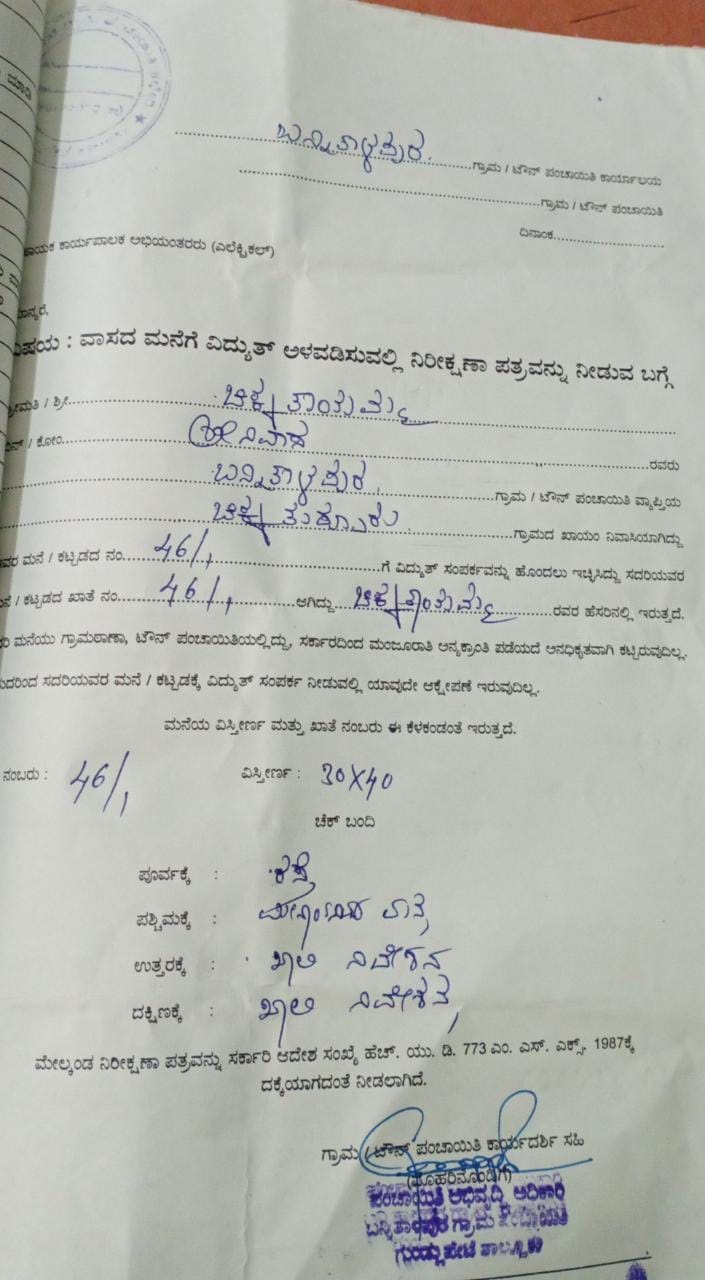 ಬನ್ನಿತಾಳಪುರ. ಗ್ರಾಮ / ಟೌನ್ ಪಂಚಾಯಿತಿ ಕಾರ್ಯಾಲಯ
ಗ್ರಾಮ / ಟೌನ್ ಪಂಚಾಯಿತಿ
ದಿನಾಂಕ
ಾಯಕ ಕಾರ್ಯಪಾಲಕ ಅಭಿಯಂತರರು (ಎಲೆಕ್ಟ್ರಿಕಲ್)
ಾನ್ಯರೆ.
ವಿಷಯ : ವಾಸದ ಮನೆಗೆ ವಿದ್ಯುತ್ ಅಳವಡಿಸುವಲ್ಲಿ ನಿರೀಕ್ಷಣಾ ಪತ್ರವನ್ನು ನೀಡುವ ಬಗ್ಗೆ
ಶ್ರೀಮತಿ / ಶ್ರೀ. ಚಿಕ್ಕ
ಬಿನ್ / ಕೋಂ. ಶ್ರೀನಿವಾಸ ರವರು
ಬನ್ನಿತಾಳಪುರ, ಗ್ರಾಮ / ಟೌನ್ ಪಂಚಾಯಿತಿ ವ್ಯಾಪ್ತಿಯ
ಚಿಕ್ಕ ಗ್ರಾಮದ ಖಾಯಂ ನಿವಾಸಿಯಾಗಿದ್ದು
ವರ ಮನೆ / ಕಟ್ಟಡದ ನಂ. 46/1 ಗೆ ವಿದ್ಯುತ್ ಸಂಪರ್ಕವನ್ನು ಹೊಂದಲು ಇಚ್ಛಿಸಿದ್ದು ಸದರಿಯವರ
ನೆ / ಕಟ್ಟಡದ ಖಾತೆ ನಂ. 46/1 ಆಗಿದ್ದು ಚಿಕ್ಕ ರವರ ಹೆಸರಿನಲ್ಲಿ ಇರುತ್ತದೆ.
ರಿ ಮನೆಯು ಗ್ರಾಮಠಾಣಾ, ಟೌನ್ ಪಂಚಾಯಿತಿಯಲ್ಲಿದ್ದು, ಸರ್ಕಾರದಿಂದ ಮಂಜೂರಾತಿ ಅನ್ಯಕ್ರಾಂತಿ ಪಡೆಯದೆ ಅನಧಿಕೃತವಾಗಿ ಕಟ್ಟಿರುವುದಿಲ್ಲ.
ುದರಿಂದ ಸದರಿಯವರ ಮನೆ / ಕಟ್ಟಡಕ್ಕೆ ವಿದ್ಯುತ್ ಸಂಪರ್ಕ ನೀಡುವಲ್ಲಿ ಯಾವುದೇ ಆಕ್ಷೇಪಣೆ ಇರುವುದಿಲ್ಲ.
ಮನೆಯ ವಿಸ್ತೀರ್ಣ ಮತ್ತು ಖಾತೆ ನಂಬರು ಈ ಕೆಳಕಂಡಂತೆ ಇರುತ್ತದೆ.
ನಂಬರು : 46/1 ವಿಸ್ತೀರ್ಣ : 30X40
ಚೆಕ್ ಬಂದಿ
ಪೂರ್ವಕ್ಕೆ : ರಸ್ತೆ
ಪಶ್ಚಿಮಕ್ಕೆ :
ಉತ್ತರಕ್ಕೆ : ಖಾಲಿ ನಿವೇಶನ
ದಕ್ಷಿಣಕ್ಕೆ : ಖಾಲಿ ನಿವೇಶನ,
ಮೇಲ್ಕಂಡ ನಿರೀಕ್ಷಣಾ ಪತ್ರವನ್ನು ಸರ್ಕಾರಿ ಆದೇಶ ಸಂಖ್ಯೆ ಹೆಚ್. ಯು. ಡಿ. 773 ಎಂ. ಎಸ್. ಎಕ್ಸ್. 1987ಕ್ಕೆ
ದಕ್ಕೆಯಾಗದಂತೆ ನೀಡಲಾಗಿದೆ.
ಗ್ರಾಮ / ಟೌನ್ ಪಂಚಾಯಿತಿ ಕಾರ್ಯದರ್ಶಿ ಸಹಿ
(ಮೊಹರಿನೊಂದಿಗೆ)
ಪಂಚಾಯಿತಿ ಅಭಿವೃದ್ಧಿ ಅಧಿಕಾರಿ
ಬನ್ನಿತಾಳಪುರ ಗ್ರಾಮ ಪಂಚಾಯಿತಿ
ಗುಂಡ್ಲುಪೇಟೆ ತಾಲ್ಲೂಕು